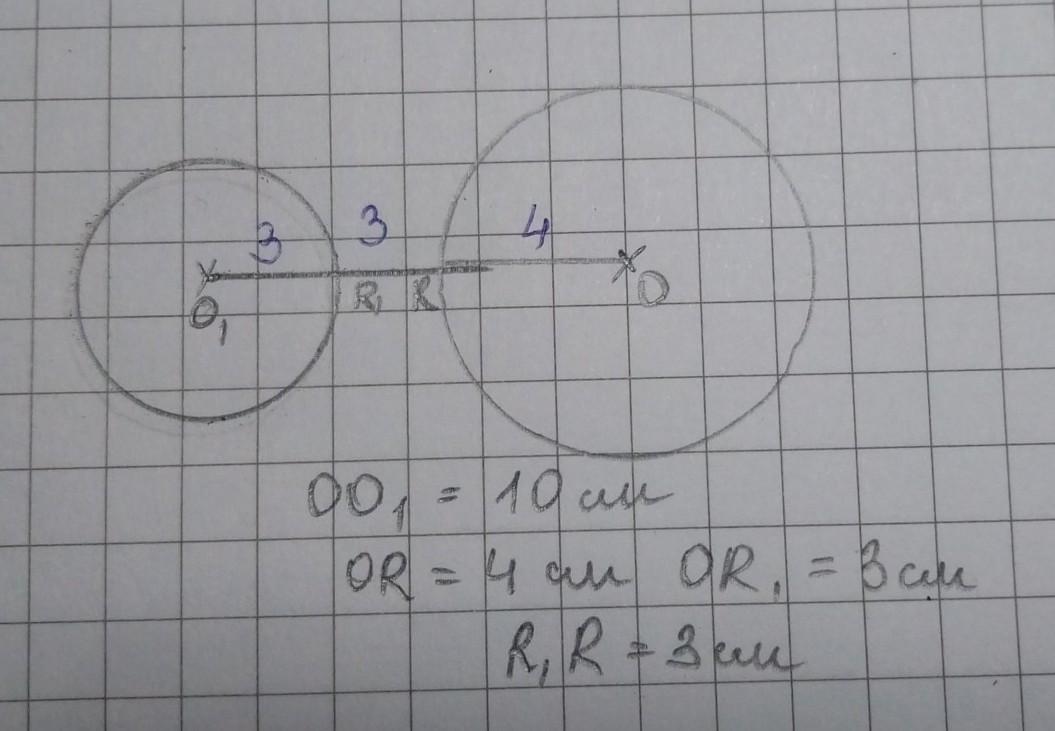 3 3 4
O₁ R₁ R O
OO₁ = 10 см
OR = 4 см OR₁ = 3 см
R₁R = 3 см